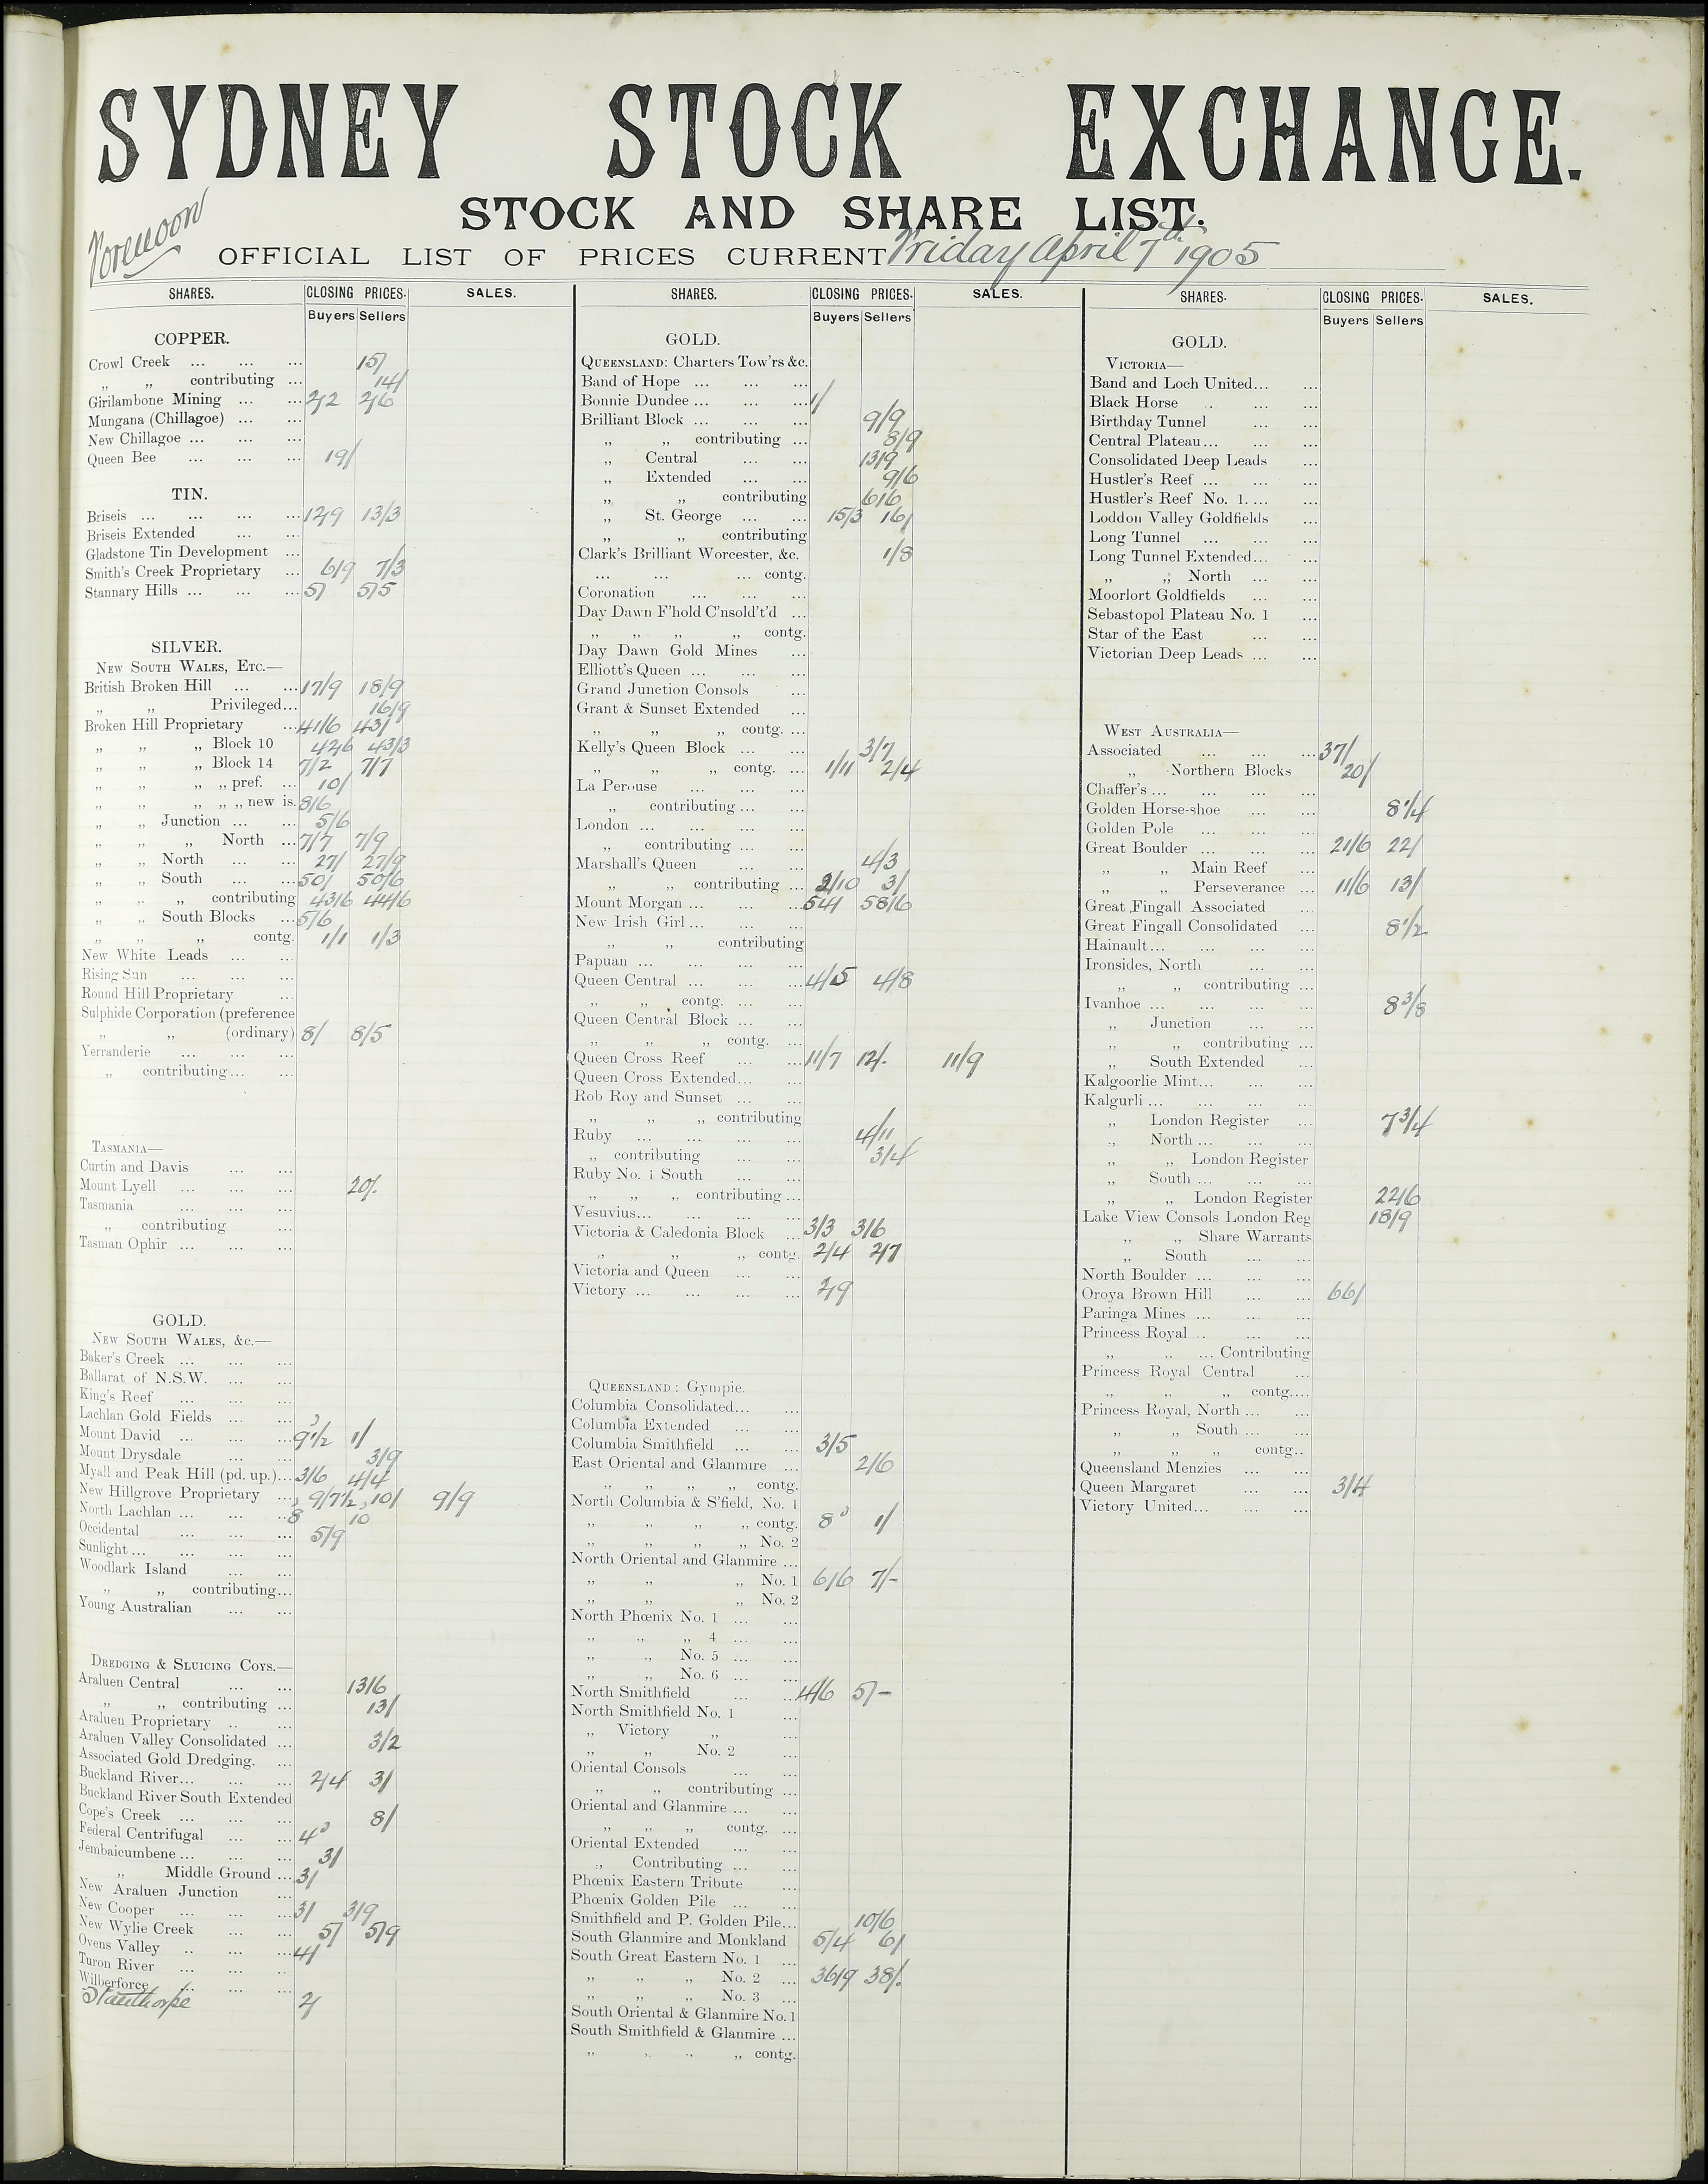 SYDNEY STOCK EXCHANGE.
STOCK AND SHARE LIST.
Forenoon
OFFICIAL LIST OF PRICES CURRENT Friday April 7th 1905
SHARES. CLOSING PRICES. SALES.
Buyers Sellers
COPPER.
Crowl Creek ... ... ... 15/
„ „ contributing ... 14/
Girilambone Mining ... ... 2/2 2/6
Mungana (Chillagoe) ... ...
New Chillagoe ... ... ...
Queen Bee ... ... ... 19/
TIN.
Briseis ... ... ... ... 12/9 13/3
Briseis Extended ... ...
Gladstone Tin Development ...
Smith's Creek Proprietary ... 6/9 7/3
Stannary Hills ... ... ... 5/ 5/5
SILVER.
NEW SOUTH WALES, ETC.—
British Broken Hill ... ... 17/9 18/9
„ „ Privileged... 16/9
Broken Hill Proprietary ... 41/6 43/
„ „ „ Block 10 42/6 43/3
„ „ „ Block 14 7/2 7/7
„ „ „ „ pref. ... 10/
„ „ „ „ „ new is. 8/6
„ „ Junction ... ... 5/6
„ „ „ North ... 7/7 7/9
„ „ North ... ... 27/ 27/9
„ „ South ... ... 50/ 50/6
„ „ „ contributing 43/6 44/6
„ „ South Blocks ... 5/6
„ „ „ contg. 1/1 1/3
New White Leads ... ...
Rising Sun ... ... ...
Round Hill Proprietary ...
Sulphide Corporation (preference
„ „ (ordinary) 8/ 8/5
Yerranderie ... ... ...
„ contributing... ...
TASMANIA—
Curtin and Davis ... ...
Mount Lyell ... ... ... 20/.
Tasmania ... ... ...
„ contributing ...
Tasman Ophir ... ... ...
GOLD.
NEW SOUTH WALES, &c.—
Baker's Creek ... ... ...
Ballarat of N.S.W. ... ...
King's Reef ... ... ...
Lachlan Gold Fields ... ...
Mount David ... ... ... 9½d 1/
Mount Drysdale ... ... 3/9
Myall and Peak Hill (pd. up.)... 3/6 4/4
New Hillgrove Proprietary ... 9/7½ 10/ 9/9
North Lachlan ... ... ... 8d 10d
Occidental ... ... ... 5/9
Sunlight ... ... ... ...
Woodlark Island ... ...
„ „ contributing...
Young Australian ... ...
DREDGING & SLUICING COYS.—
Araluen Central ... ... 13/6
„ „ contributing ... 13/
Araluen Proprietary .. ...
Araluen Valley Consolidated ... 3/2
Associated Gold Dredging. ...
Buckland River... ... ... 2/4 3/
Buckland River South Extended
Cope's Creek ... ... ... 8/
Federal Centrifugal ... ... 4d
Jembaicumbene ... ... ... 3/
„ Middle Ground ... 3/
New Araluen Junction ...
New Cooper ... ... ... 3/ 3/9
New Wylie Creek ... ... 5/ 5/9
Ovens Valley .. ... ... 4/
Turon River ... ... ..
Wilberforce ... ... ...
Stanthorpe 2/
SHARES. CLOSING PRICES. SALES.
Buyers Sellers
GOLD.
QUEENSLAND: Charters Tow'rs &c.
Band of Hope ... ... ...
Bonnie Dundee ... ... ... 1/
Brilliant Block ... ... ... 9/9
„ „ contributing ... 8/9
„ Central ... ... 13/9
„ Extended ... ... 9/6
„ „ contributing 6/6
„ St. George ... ... 15/3 16/
„ „ contributing
Clark's Brilliant Worcester, &c. 1/8
... ... ... contg.
Coronation ... ... ...
Day Dawn F'hold C'nsold't'd ...
„ „ „ „ contg.
Day Dawn Gold Mines ...
Elliott's Queen ... ... ...
Grand Junction Consols ...
Grant & Sunset Extended ...
„ „ „ contg. ...
Kelly's Queen Block ... ... 3/7
„ „ „ contg. ... 1/11 2/4
La Perouse ... ... ...
„ contributing ... ...
London ... ... ... ...
„ contributing ... ...
Marshall's Queen ... ... 4/3
„ „ contributing ... 2/10 3/
Mount Morgan ... ... ... 54/ 58/6
New Irish Girl ... ... ...
„ „ contributing
Papuan ... ... ... ...
Queen Central ... ... ... 4/5 4/8
„ „ contg. ... ...
Queen Central Block ... ...
„ „ „ contg. ...
Queen Cross Reef ... ... 11/7 12/. 11/9
Queen Cross Extended... ...
Rob Roy and Sunset ... ...
„ „ „ contributing
Ruby ... ... ... ... 4/11
„ contributing ... ... 3/4
Ruby No. 1 South ... ...
„ „ „ contributing ...
Vesuvius... ... ... ...
Victoria & Caledonia Block ... 3/3 3/6
„ „ „ contg. 2/4 2/7
Victoria and Queen ... ...
Victory ... ... ... ... 2/9
QUEENSLAND: Gympie.
Columbia Consolidated... ...
Columbia Extended ... ...
Columbia Smithfield ... ... 3/5
East Oriental and Glanmire ... 2/6
„ „ „ „ contg.
North Columbia & S'field, No. 1
„ „ „ „ contg. 8d 1/
„ „ „ „ No. 2
North Oriental and Glanmire ...
„ „ „ No. 1 6/6 7/-
„ „ „ No. 2
North Phœnix No. 1 ... ...
„ „ „ 4 ... ...
„ „ No. 5 ... ...
„ „ No. 6 ... ...
North Smithfield ... ... 4/6 5/-
North Smithfield No. 1 ...
„ Victory „ ...
„ „ No. 2 ...
Oriental Consols ... ...
„ „ contributing ...
Oriental and Glanmire ... ...
„ „ „ contg. ...
Oriental Extended ... ...
„ Contributing ... ...
Phœnix Eastern Tribute ...
Phœnix Golden Pile ... ...
Smithfield and P. Golden Pile... 10/6
South Glanmire and Monkland 5/4 6/
South Great Eastern No. 1 ...
„ „ „ No. 2 ... 36/9 38/.
„ „ „ No. 3 ...
South Oriental & Glanmire No. 1
South Smithfield & Glanmire ...
„ „ „ „ contg.
SHARES. CLOSING PRICES. SALES.
Buyers Sellers
GOLD.
VICTORIA—
Band and Loch United... ...
Black Horse .. ... ...
Birthday Tunnel ... ...
Central Plateau ... ... ...
Consolidated Deep Leads ...
Hustler's Reef ... ... ...
Hustler's Reef No. 1. ... ...
Loddon Valley Goldfields ...
Long Tunnel ... ... ...
Long Tunnel Extended... ...
„ „ North ... ...
Moorlort Goldfields ... ...
Sebastopol Plateau No. 1 ...
Star of the East ... ...
Victorian Deep Leads ... ...
WEST AUSTRALIA—
Associated ... ... ... 37/
„ Northern Blocks 20/
Chaffer's ... ... ... ...
Golden Horse-shoe ... ... 8¼
Golden Pole ... ... ...
Great Boulder ... ... ... 21/6 22/
„ „ Main Reef ...
„ „ Perseverance ... 11/6 13/
Great Fingall Associated ...
Great Fingall Consolidated ... 8½
Hainault ... ... ... ...
Ironsides, North ... ...
„ „ contributing ...
Ivanhoe ... ... ... ... 8⅜
„ Junction ... ...
„ „ contributing ...
„ South Extended ...
Kalgoorlie Mint... ... ...
Kalgurli ... ... ... ...
„ London Register ... 7¾
„ North ... ... ...
„ „ London Register
„ South ... ... ...
„ „ London Register 22/6
Lake View Consols London Reg 18/9
„ „ Share Warrants
„ South ... ...
North Boulder ... ... ...
Oroya Brown Hill ... ... 66/
Paringa Mines ... ... ...
Princess Royal .. ... ...
„ „ ... Contributing
Princess Royal Central ...
„ „ „ contg....
Princess Royal, North ... ...
„ „ South ... ...
„ „ „ contg..
Queensland Menzies ... ...
Queen Margaret ... ... 3/4
Victory United ... ... ...